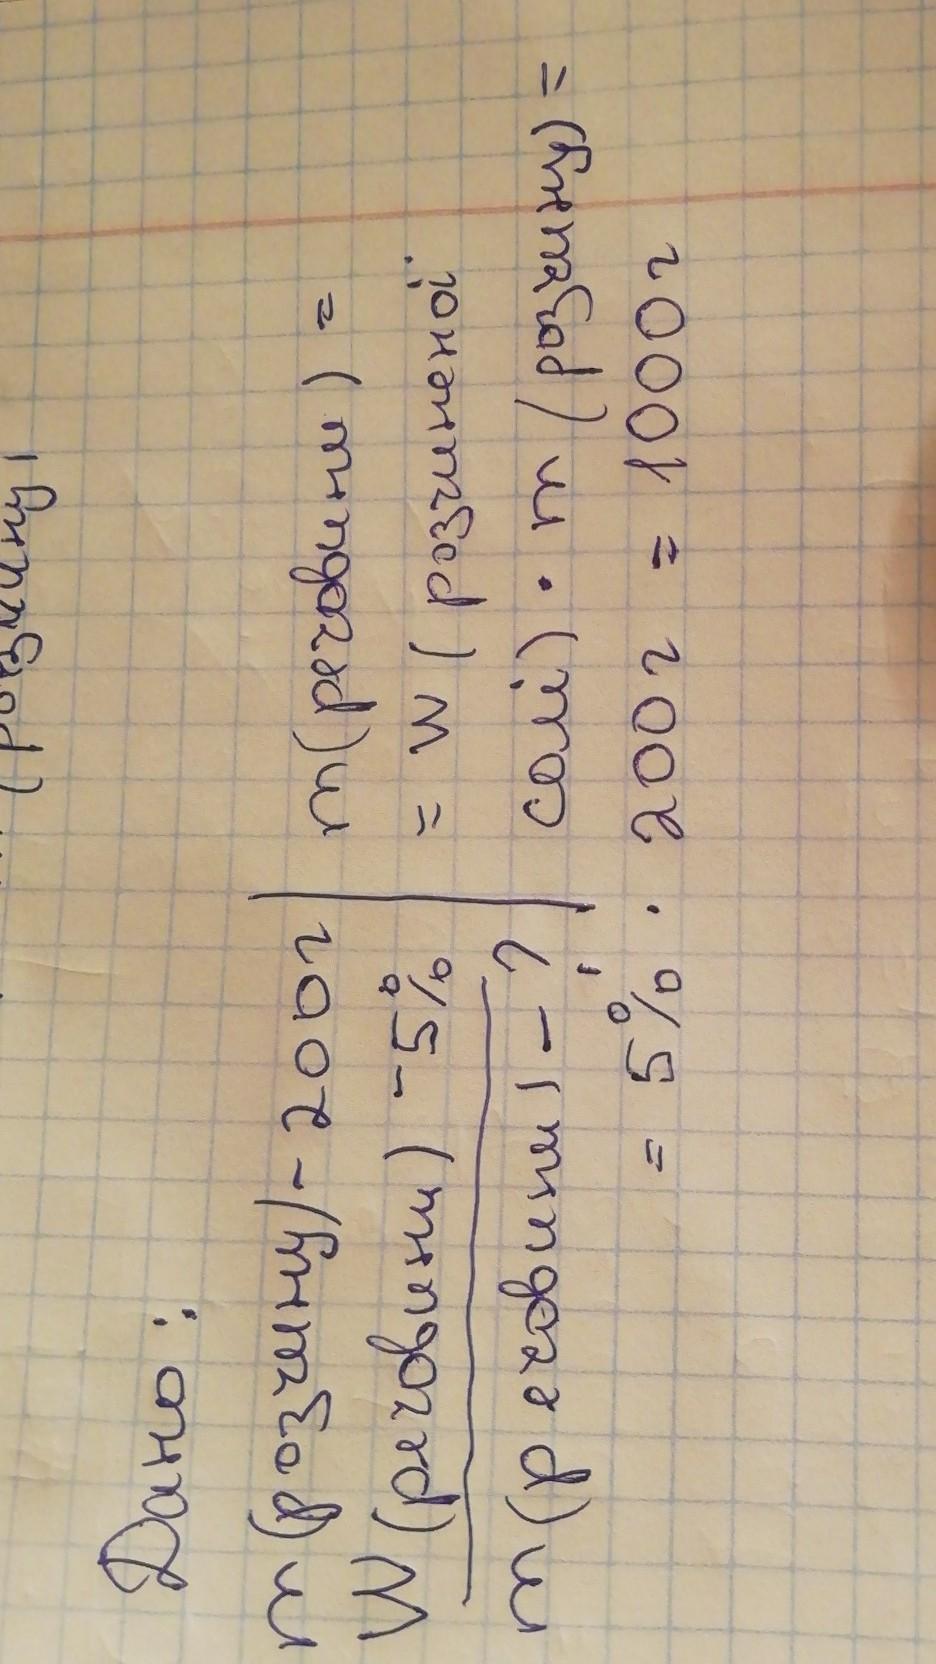 (розчину)
Дано:
m(розчину) - 200г
W(речовини) - 5%
m(речовини) - ?
m(речовини) =
= w(розчиненої
солі) · m(розчину) =
= 5% · 200г = 1000г